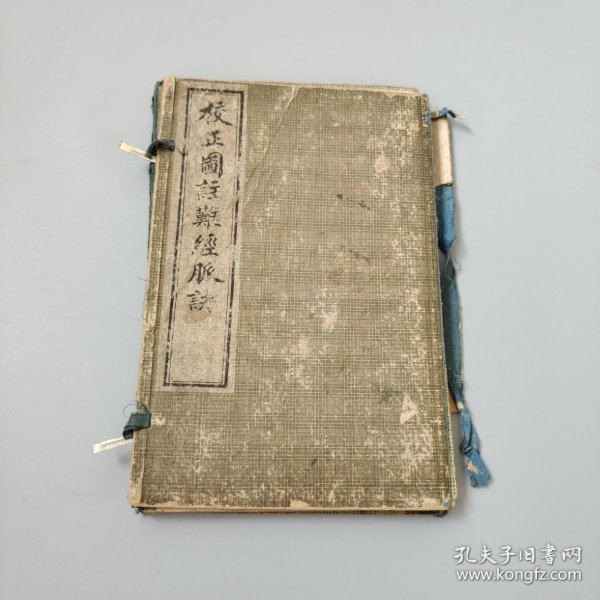 校正圖註難經脈訣
孔夫子旧书网
www.kongfz.com